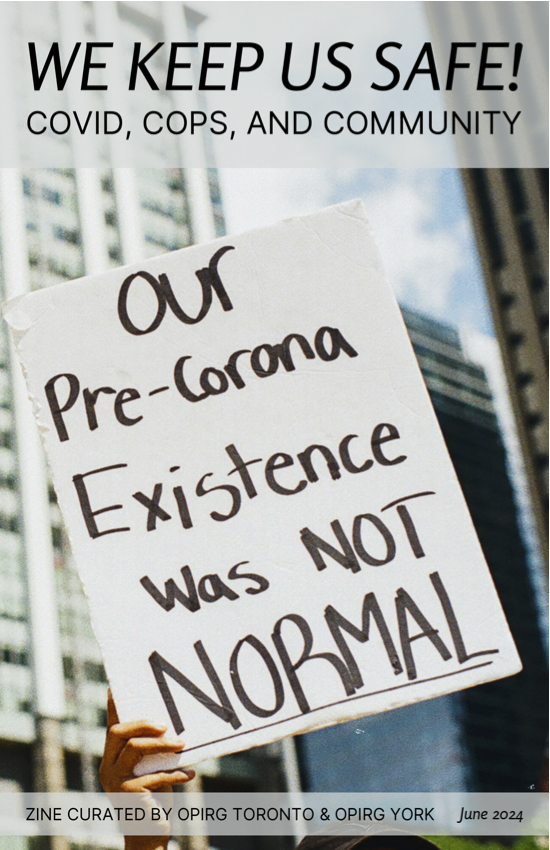 WE KEEP US SAFE!
COVID, COPS, AND COMMUNITY
Our
Pre-Corona
Existence
Was NOT
NORMAL
ZINE CURATED BY OPIRG TORONTO & OPIRG YORK June 2024